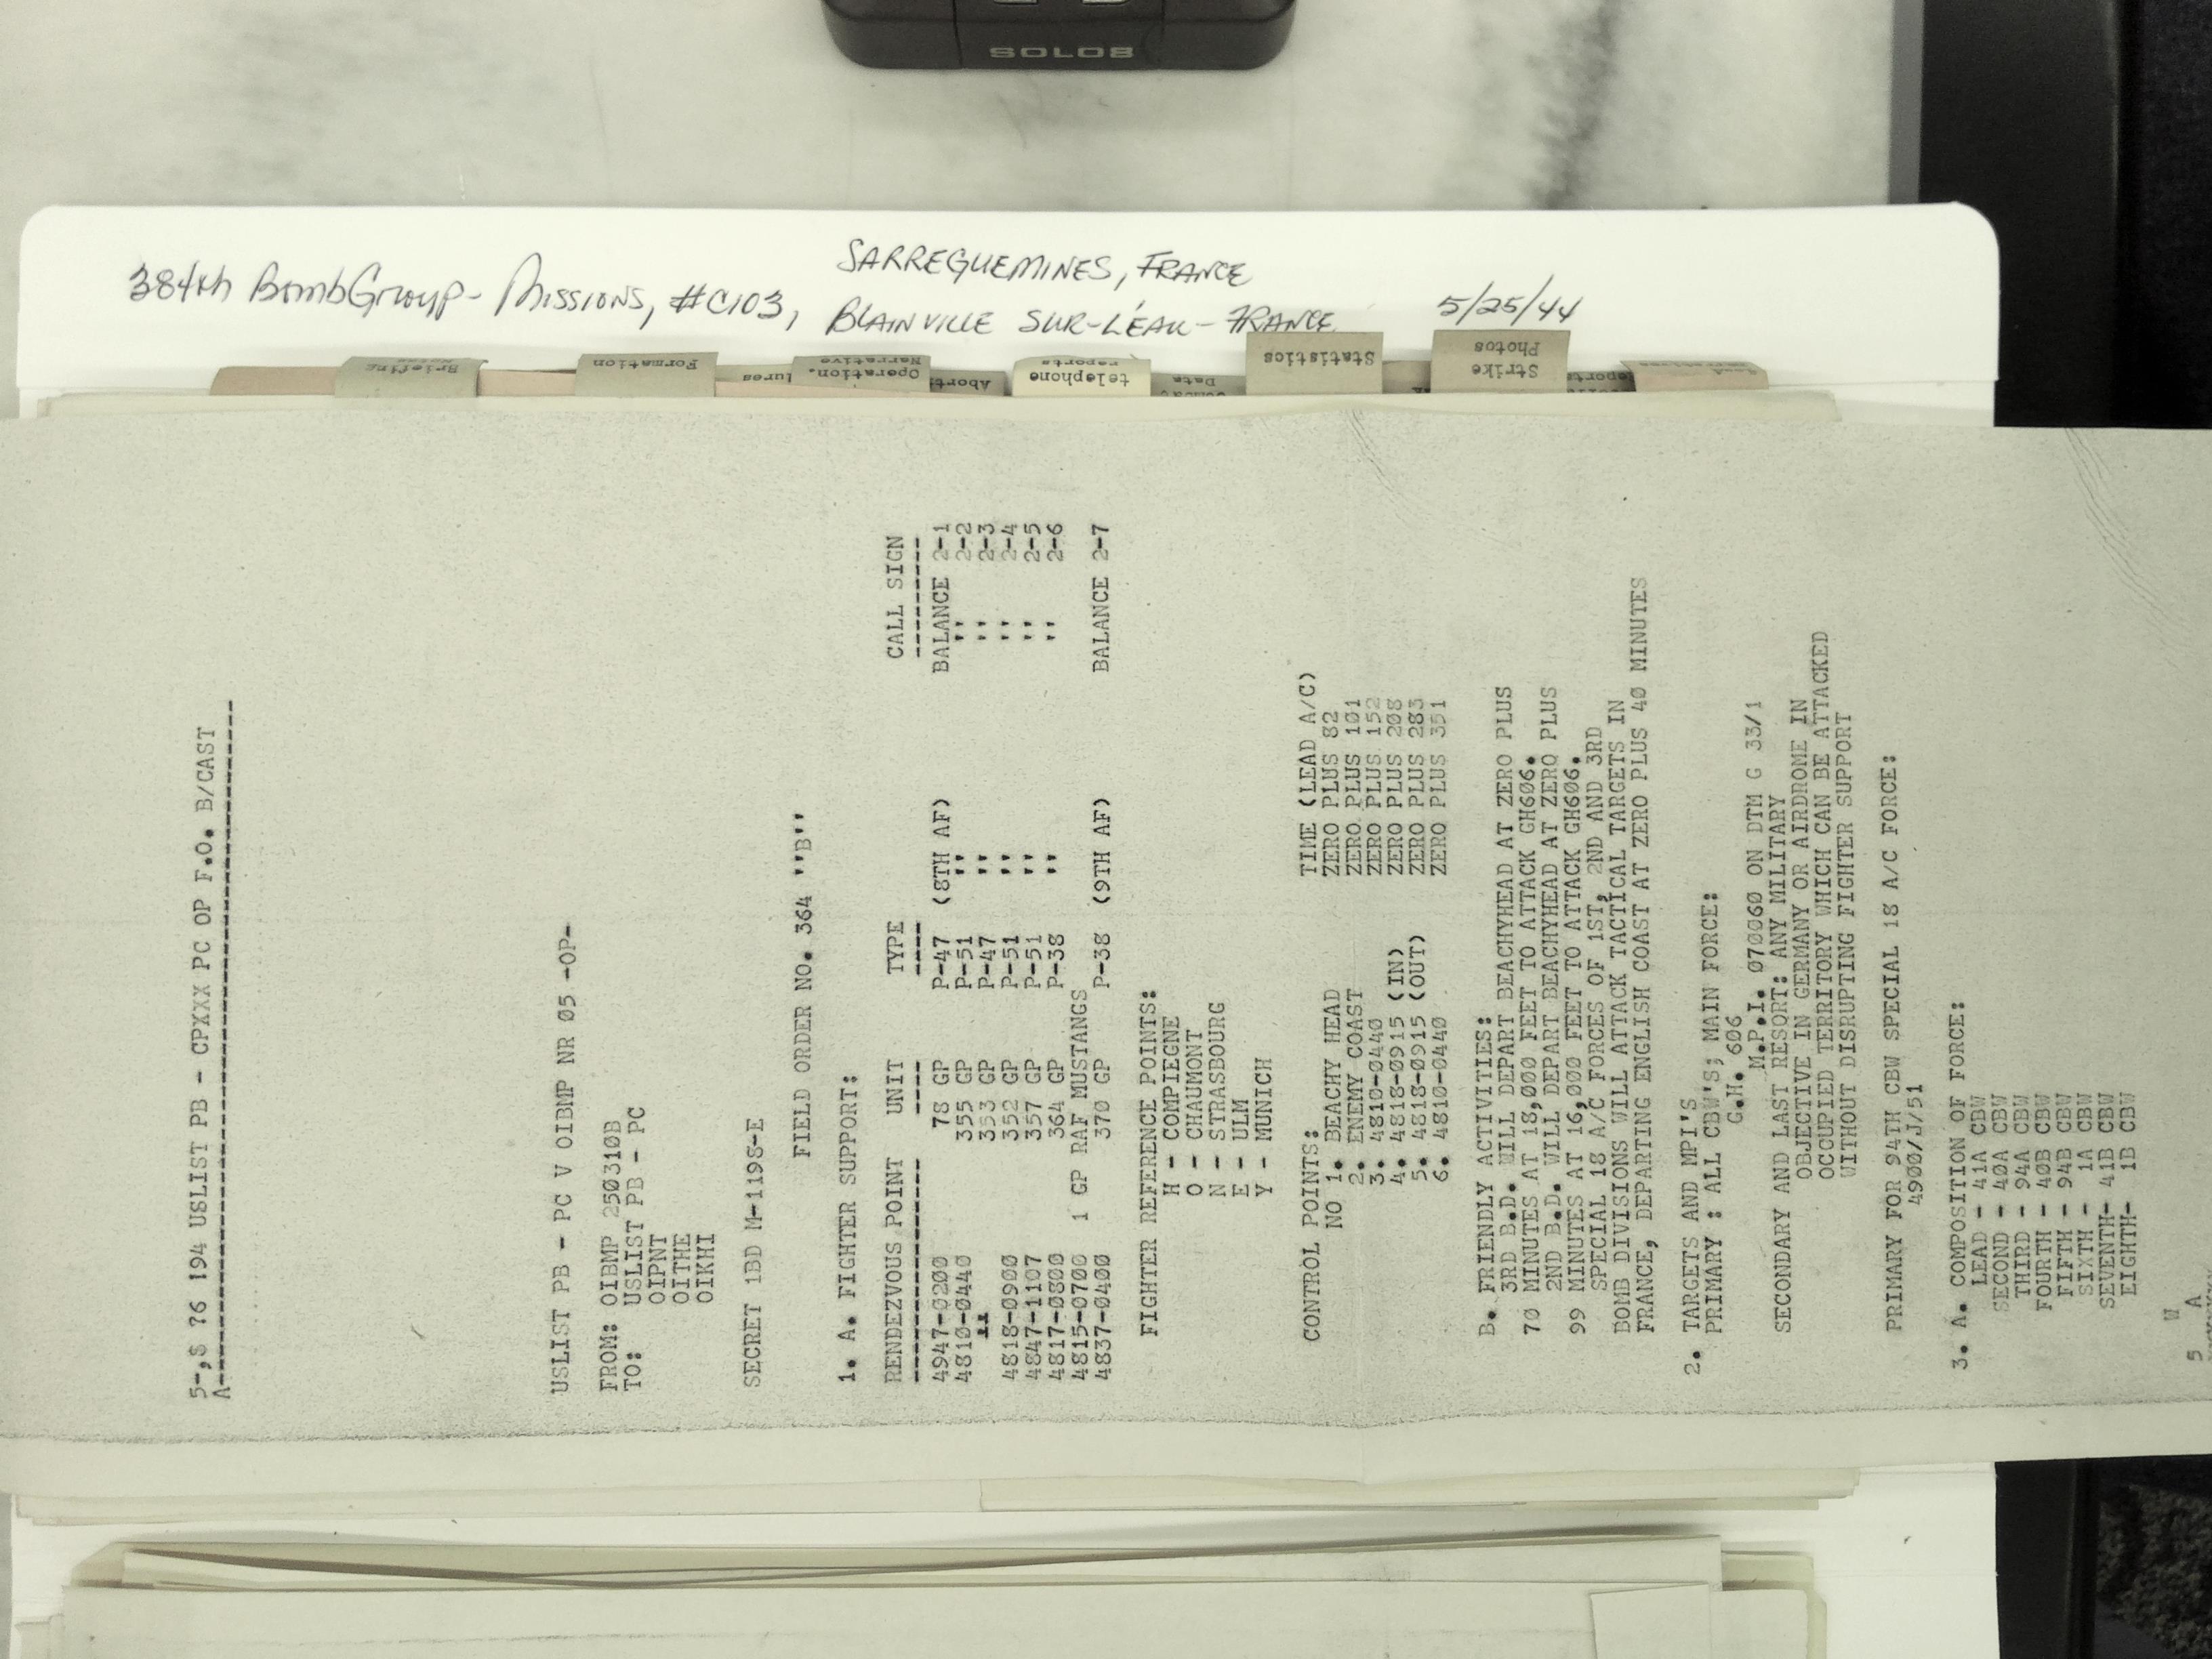 SOLO8
SARREGUEMINES, FRANCE
384th BombGroup- Missions, #C103, BLAINVILLE SUR-L'EAU- FRANCE 5/25/44
Briefing
Formation
Operation.
Narrative
telephone
reports
Data
Statistics
Strike
Photos
5-,$ ?6 194 USLIST PB - CPXXX PC OP F.O. B/CAST
USLIST PB - PC V OIBMP NR 05 -OP-
FROM: OIBMP 250310B
TO: USLIST PB - PC
OIPNT
OITHE
OIKHI
SECRET 1BD M-1198-E
FIELD ORDER NO. 364 ''B''
1. A. FIGHTER SUPPORT:
RENDEZVOUS POINT UNIT TYPE CALL SIGN
4947-0200 78 GP P-47 (8TH AF) BALANCE 2-1
4810-0440 355 GP P-51 '' '' 2-2
'' 353 GP P-47 '' '' 2-3
4818-0900 352 GP P-51 '' '' 2-4
4847-1107 357 GP P-51 '' '' 2-5
4817-0800 364 GP P-38 '' '' 2-6
4815-0700 1 GP RAF MUSTANGS
4837-0400 370 GP P-38 (9TH AF) BALANCE 2-7
FIGHTER REFERENCE POINTS:
H - COMPIEGNE
O - CHAUMONT
N - STRASBOURG
E - ULM
Y - MUNICH
CONTROL POINTS: TIME (LEAD A/C)
NO 1. BEACHY HEAD ZERO PLUS 82
2. ENEMY COAST ZERO PLUS 101
3. 4810-0440 ZERO PLUS 152
4. 4818-0915 (IN) ZERO PLUS 208
5. 4818-0915 (OUT) ZERO PLUS 283
6. 4810-0440 ZERO PLUS 351
B. FRIENDLY ACTIVITIES:
3RD B.D. WILL DEPART BEACHYHEAD AT ZERO PLUS
70 MINUTES AT 18,000 FEET TO ATTACK GH606.
2ND B.D. WILL DEPART BEACHYHEAD AT ZERO PLUS
99 MINUTES AT 16,000 FEET TO ATTACK GH606.
SPECIAL 18 A/C FORCES OF 1ST, 2ND AND 3RD
BOMB DIVISIONS WILL ATTACK TACTICAL TARGETS IN
FRANCE, DEPARTING ENGLISH COAST AT ZERO PLUS 40 MINUTES
2. TARGETS AND MPI'S
PRIMARY : ALL CBW'S; MAIN FORCE:
G.H. 606
M.P.I. 070060 ON DTM G 33/1
SECONDARY AND LAST RESORT: ANY MILITARY
OBJECTIVE IN GERMANY OR AIRDROME IN
OCCUPIED TERRITORY WHICH CAN BE ATTACKED
WITHOUT DISRUPTING FIGHTER SUPPORT
PRIMARY FOR 94TH CBW SPECIAL 18 A/C FORCE:
4900/J/51
3. A. COMPOSITION OF FORCE:
LEAD - 41A CBW
SECOND - 40A CBW
THIRD - 94A CBW
FOURTH - 40B CBW
FIFTH - 94B CBW
SIXTH - 1A CBW
SEVENTH- 41B CBW
EIGHTH- 1B CBW
W
5 A